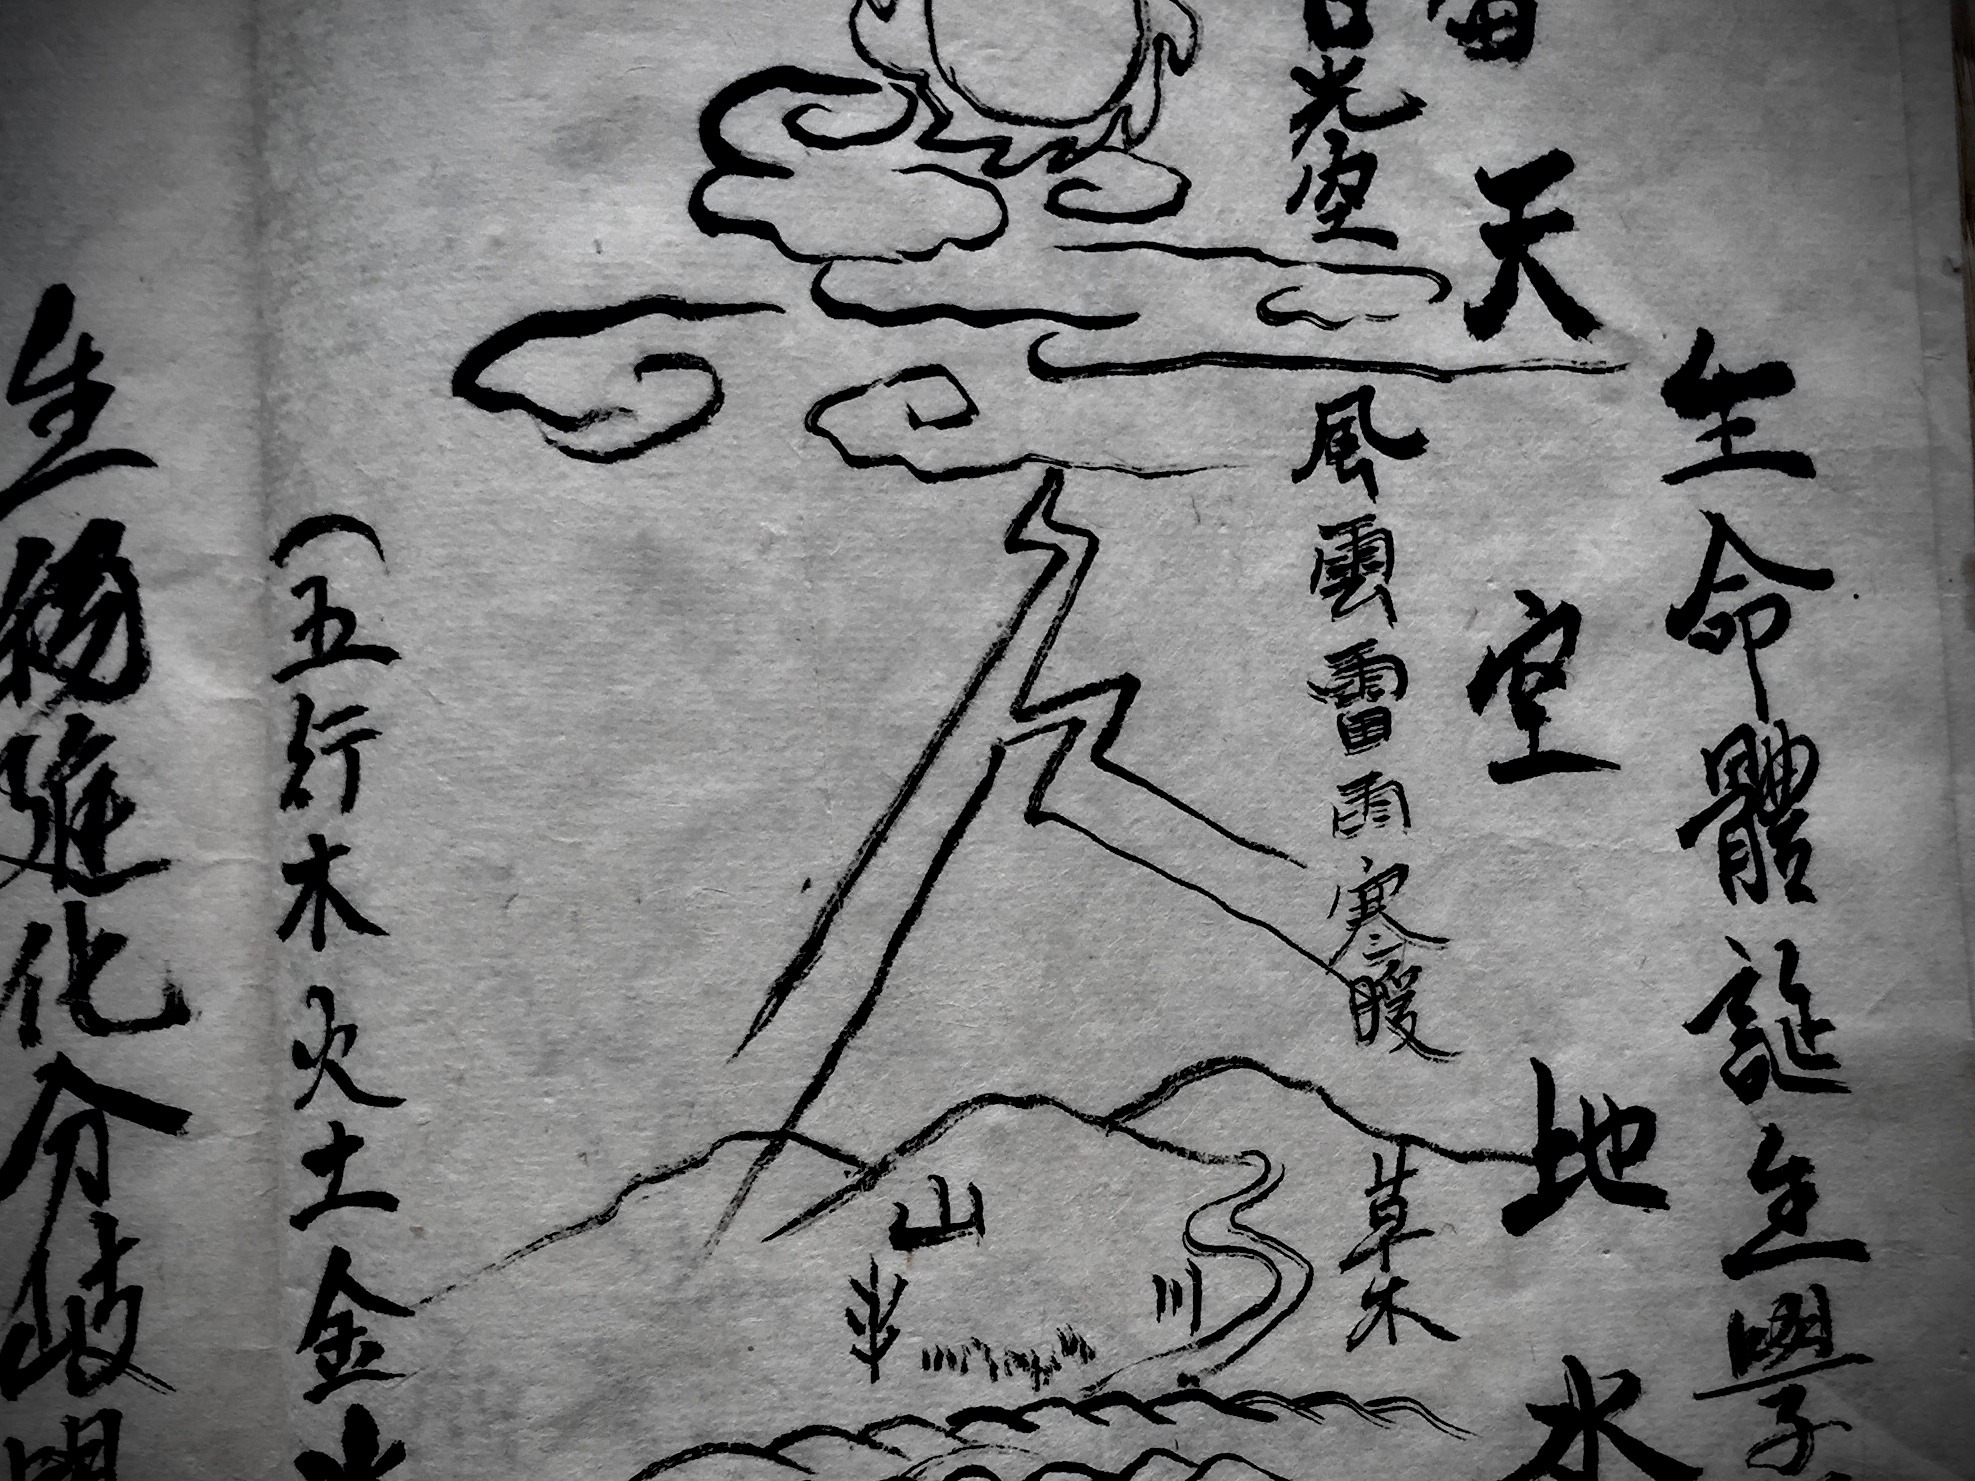 生命體誕生學
天空地水
日光空
風雲雷雨寒暖
草木
川
山
(五行木火土金水
生物進化分岐